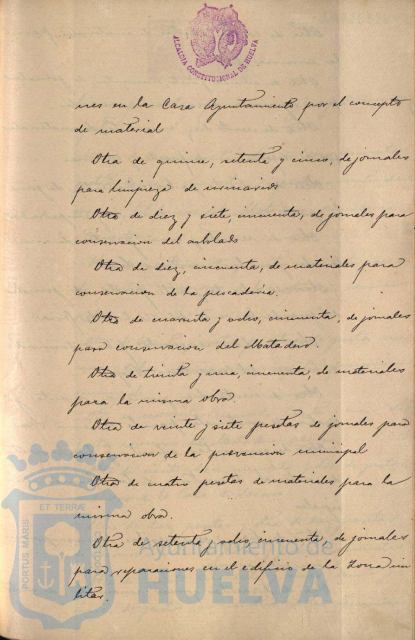 ALCALDIA CONSTITUCIONAL DE HUELVA
nes en la Casa Ayuntamiento por el concepto
de material
Otra de quince, setenta y cinco, de jornales
para limpieza de urinarios
Otra de diez y siete, cincuenta, de jornales para
conservacion del arbolado
Otra de diez, cincuenta, de materiales para
conservacion de la pescaderia.
Otra de cuarenta y ocho, cincuenta, de jornales
para conservacion del Matadero.
Otra de treinta y una, cincuenta, de materiales
para la misma obra.
Otra de veinte y siete pesetas de jornales para
conservacion de la prevencion municipal
Otra de cuatro pesetas de materiales para la
misma obra.
Otra de setenta y ocho, cincuenta, de jornales
para reparaciones en el edificio de la Zona mi
litar.
PORTUS MARIS
ET TERRÆ
Ayuntamiento de
HUELVA